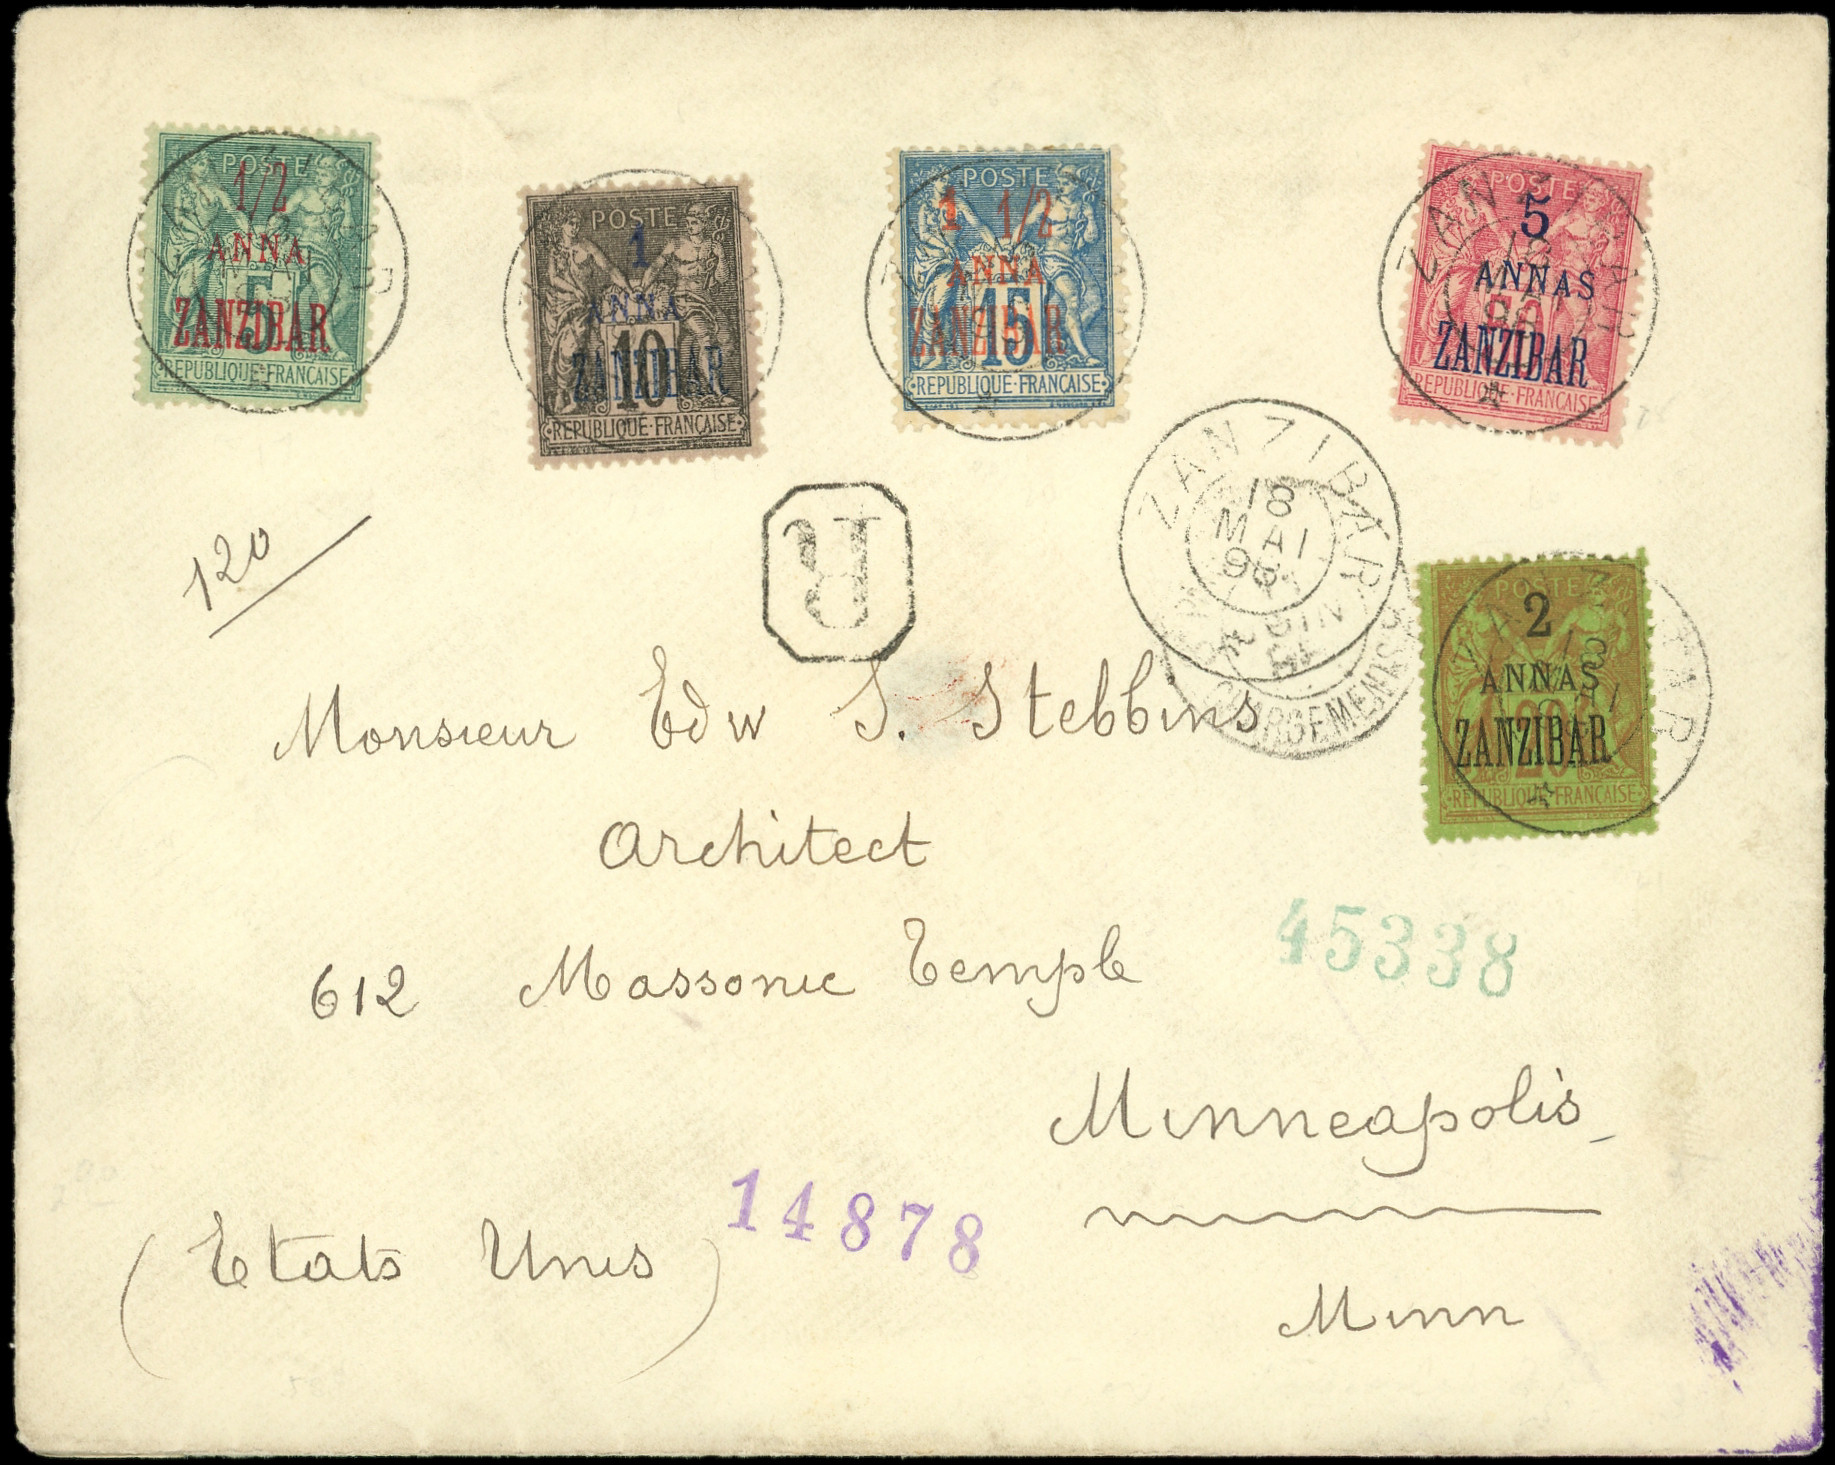 POSTE
1/2
ANNA
5
ZANZIBAR
REPUBLIQUE FRANCAISE
POSTE
1
ANNA
10
ZANZIBAR
REPUBLIQUE FRANCAISE
POSTE
1 1/2
ANNA
15
ZANZIBAR
REPUBLIQUE FRANCAISE
POSTE
5
ANNAS
50
ZANZIBAR
REPUBLIQUE FRANCAISE
ZANZIBAR
120
R
ZANZIBAR
18
MAI
CHARGEMENTS
POSTE
2
ANNAS
20
ZANZIBAR
REPUBLIQUE FRANCAISE
Monsieur Edw S. Stebbins
Architect
612 Massonic Temple
45338
Minneapolis
14878
(Etats Unis)
Minn